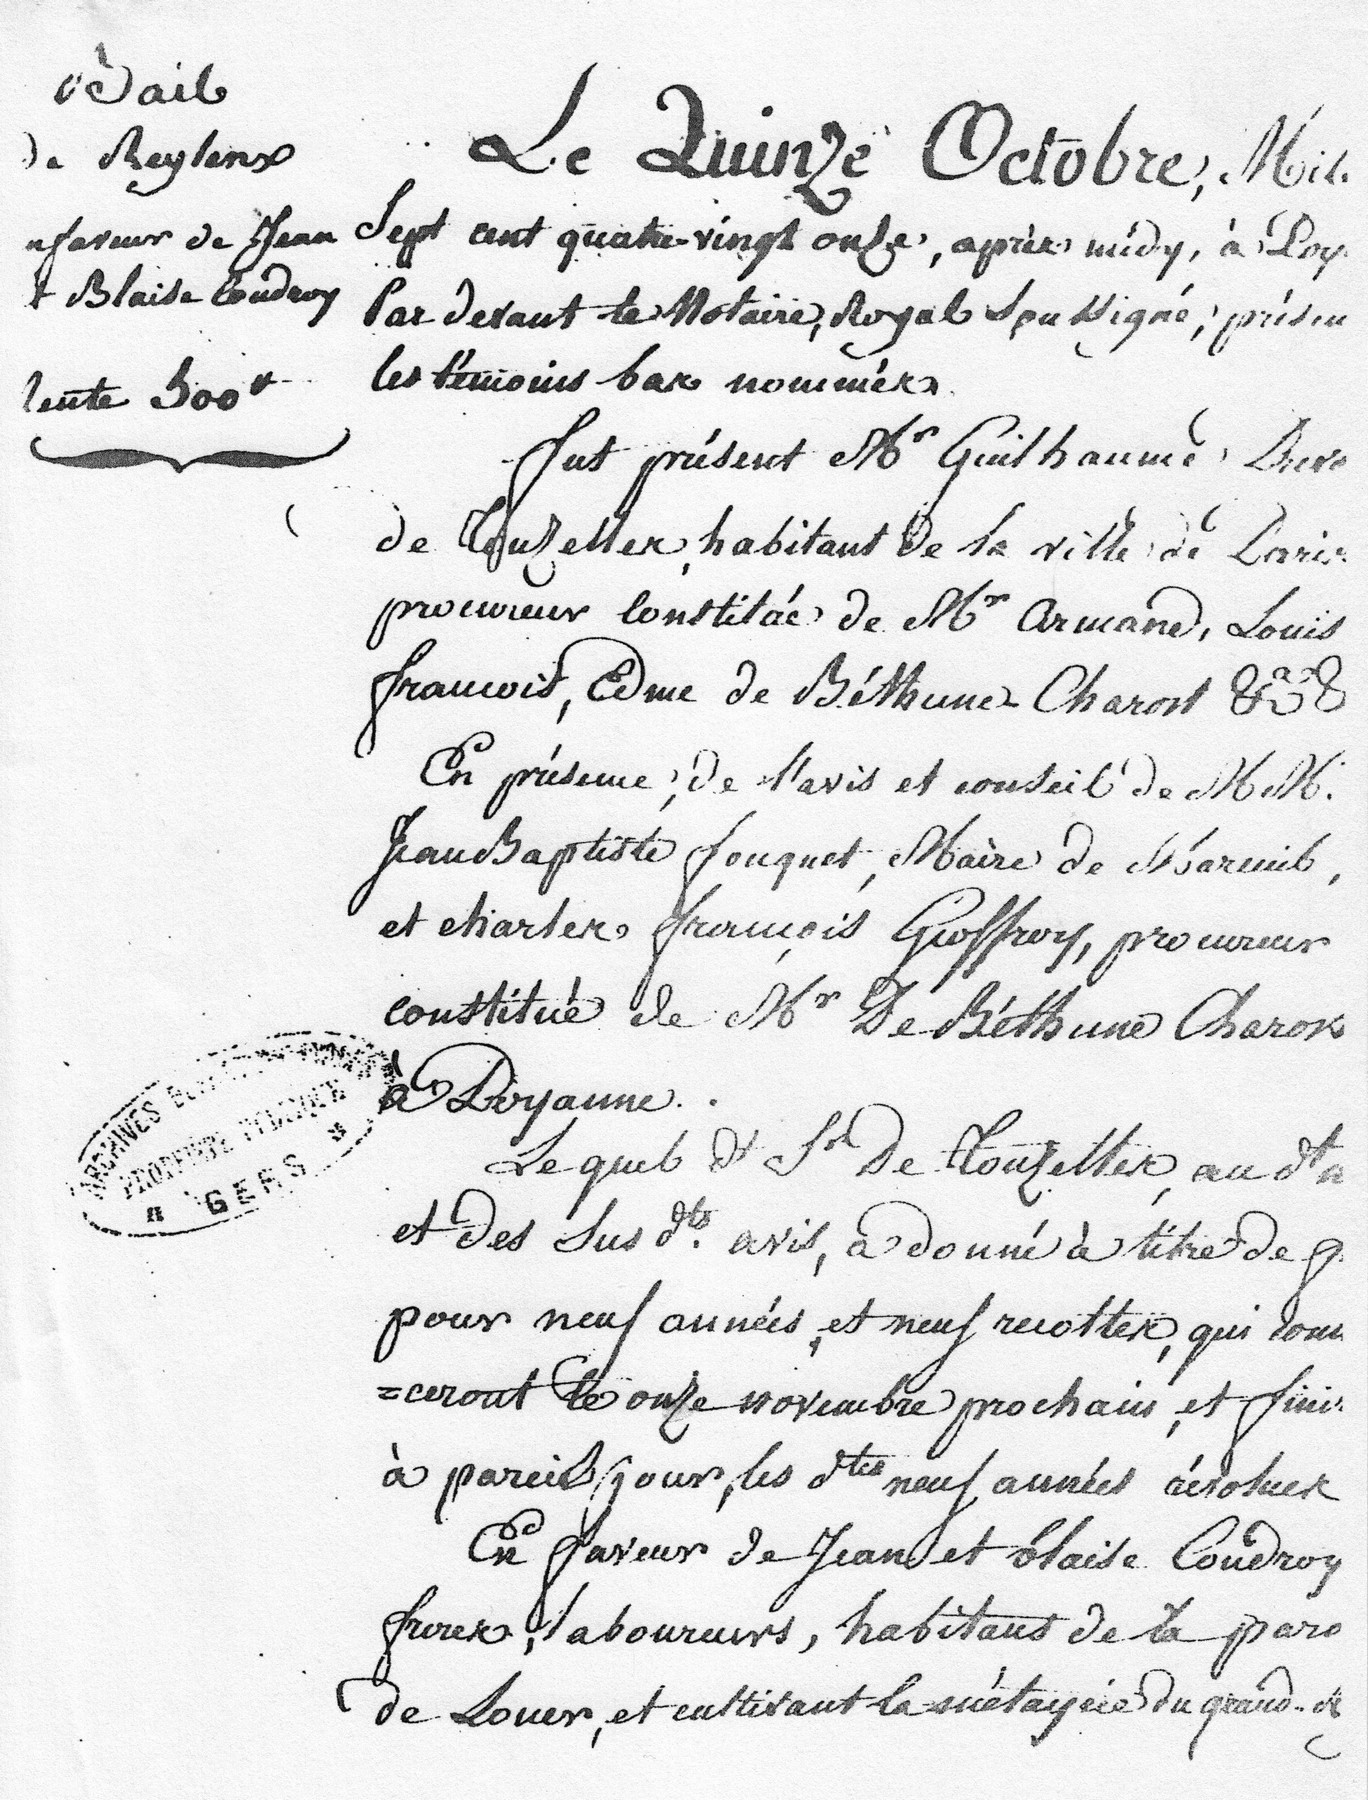 Bail
de Reylenx
nfaveur de Jean
t Blaise Coudroy
Vente 500#
Le Quinze Octobre, Mil
Sept cent quatre-vingt onze, après midy, à Poy
Par devant le Notaire, Royal Soussigné, présen
les témoins bas nommés.
fut présent Mr Guilhaume
de Touzelles, habitant de la ville de Paris
procureur Constitué de Mr Armand, Louis
francois, Edme de Béthune Charost
En présence, de l'avis et conseil de MM.
Jean Baptiste fouquet, Maire de Mareuil,
et charles françois Geoffroy, procureur
constitué de Mr De Béthune Charos
à Poyanne.
Lequel dt Sr De Touzelles, au dt n
et des sus dts. avis, a donné à titre de
pour neuf années, et neuf recoltes, qui com
=ceront le onze novembre prochain, et fini
à pareil jour, les dtes neuf années révolues
En faveur de Jean et blaise Coudroy
freres, laboureurs, habitans de la paro
de Louer, et cultivant la métayrie du grand
ARCHIVES
PROPRIETE PUBLIQUE
GERS